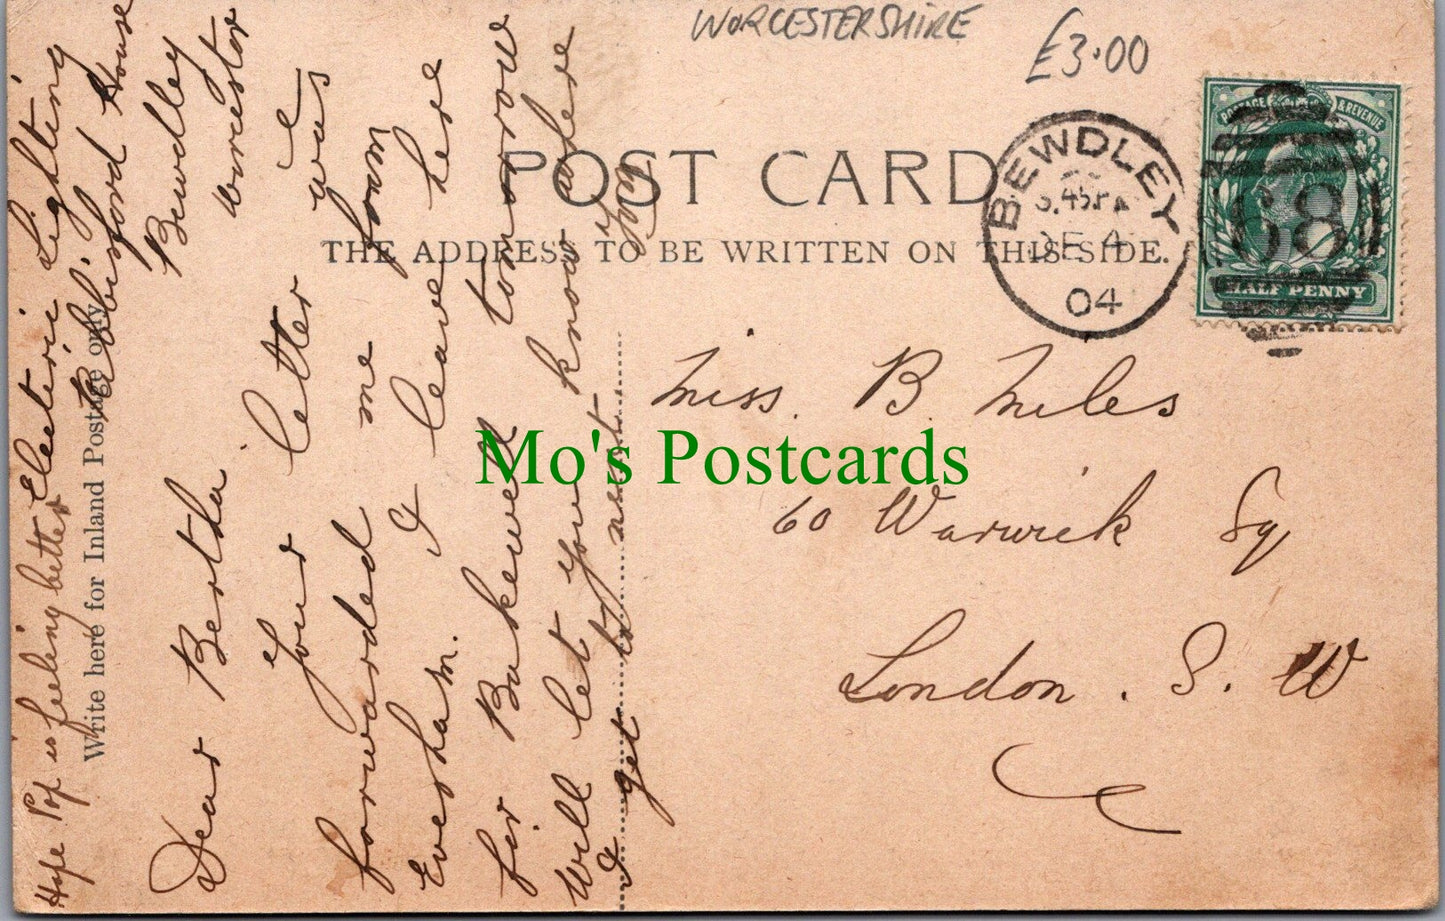 WORCESTERSHIRE
£3.00
POST CARD
THE ADDRESS TO BE WRITTEN ON THIS SIDE.
BEWDLEY
3.45.PM
DE 4
04
POSTAGE & REVENUE
HALF PENNY
68
Miss. B. Miles
60 Warwick Sq
London. S. W
Write here for Inland Postage only
Electric Lighting
House
Bewdley
Worcester
Dear Bertha
Your letter was
forwarded me from
Evesham. I leave here
for Bakewell tomorrow
Will let you know where
I get to next.
Hope Pop is feeling better
Mo's Postcards